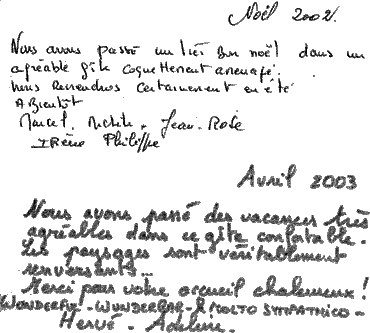 Noël 2002.
Nous avons passé un très bon noël dans un
agréable gîte coquettement amenagé.
Nous reviendrons certainement en été
A Bientôt
Marcel, Jean-Rose
Irène Philippe
Avril 2003
Nous avons passé des vacances très
agréables dans ce gîte confortable.
Les paysages sont véritablement
renversants...
Merci pour votre accueil chaleureux !
WONDERFUL - WUNDERBAR - MOLTO SYMPATHICO -
Hervé - Adeline.